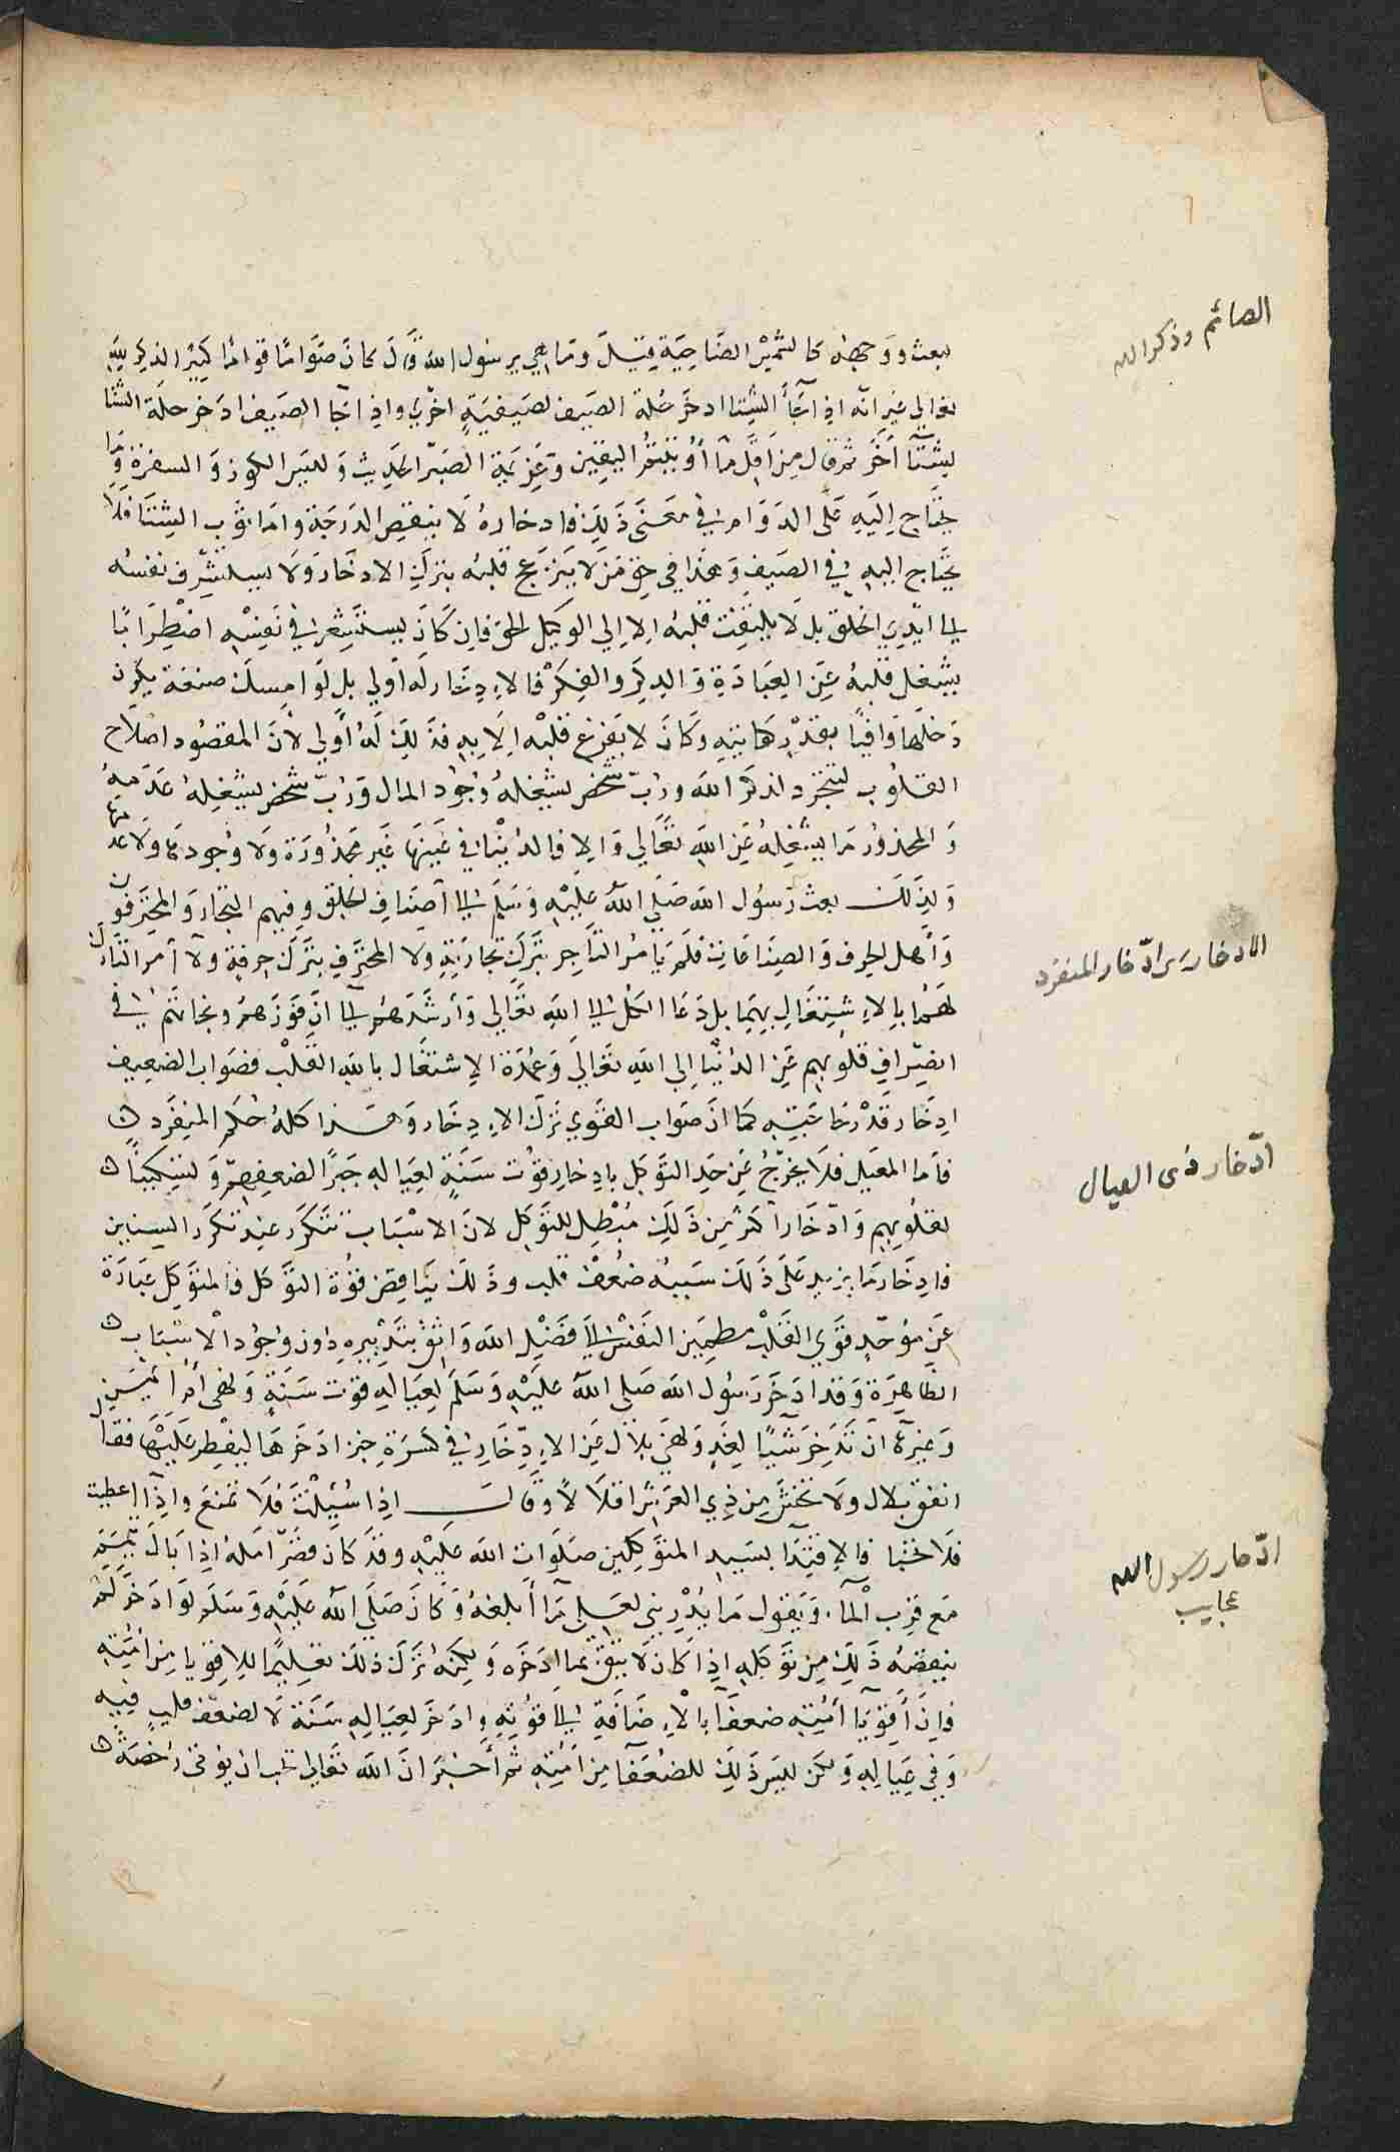 الصائم وذكر الله
يبعث ووجهه كالشمس الضاحية قيل وما هي يرسول الله قال كان صواما قواما كثير الذكر لله
تعالى غير انه اذا جاء الشتا ادخر حلة الصيف لصيفية اخرى واذا جا الصيف ادخر حلة الشتا
لشتآ آخر ثم قال من اقل ما أوتيتم اليقين وعزيمة الصبر الحديث وليس الكوز والسفرة وما
يحتاج إليه على الدوام في معنى ذلك فادخاره لا ينقص الدرجة واما ثوب الشتا فلا
يحتاج اليه في الصيف وهذا في حق من لا ينزعج قلبه بترك الادخار ولا يستشرف نفسه
الى ايدي الخلق بل لا يلتفت قلبه الا الي الوكيل الحق فان كان يستشعر في نفسه اضطرابا
يشغل قلبه عن العبادة والذكر والفكر فالادخار له أولي بل لو امسك ضيعة يكون
دخلها وافيا بقدر كفايته وكان لا يفرغ قلبه الا به فذلك له أولي لأن المقصود اصلاح
القلوب لتتجرد لذكر الله ورب شخص يشغله وجود المال ورب شخص يشغله عدمه
والمحذور ما يشغله عن الله تعالي والا فالدنيا في عينها غير محذورة ولا وجودها ولا عدمها
ولذلك بعث رسول الله صلي الله عليه وسلم الى اصناف الخلق وفيهم التجار والمحترفون
وأهل الحرف والصناعات فلم يامر التاجر بترك تجارته ولا المحترف بترك حرفته ولا أمر التارك
لهما بالاشتغال بهما بل دعا الكل الى الله تعالي وأرشدهم الى ان فوزهم ونجاتهم في
الادخار سر ادّخار المنفرد
انصراف قلوبهم عن الدنيا إلي الله تعالي وعمدة الاشتغال بالله القلب فصواب الضعيف
ادخار قدر حاجته كما ان صواب القوي ترك الادخار وهذا كله حكم المنفرد
فأما المعيل فلا يخرج عن حد التوكل بادخار قوت سنة لعياله جبرا لضعفهم وتسكينا
ادّخار ذى العيال
لقلوبهم وادّخار اكثر من ذلك مبطل للتوكل لان الاسباب تتكرر عند تكرر السنين
فادخار ما يزيد على ذلك سببه ضعف قلب وذلك يناقض قوة التوكل فالمتوكل عبارة
عن موحد قوي القلب مطمين النفس الى فضل الله واثق بتدبيره دون وجود الاسباب
الظاهرة وقد ادخر رسول الله صلى الله عليه وسلم لعياله قوت سنة ونهى أم ايمن
وغيرها ان تدخر شيا لغد ونهي بلال عن الادخار في كسرة خبز ادخرها ليفطر عليها فقال
انفق بلال ولا تخش من ذي العرش اقلالا وقال اذا سئلت فلا تمنع واذا اعطيت
فلا تخبا فالاقتدا بسيد المتوكلين صلوات الله عليه وقد كان قصر امله اذا بال تيمم
ادّحار رسول الله
عجايب
مع قرب المآ. ويقول ما يدريني لعلي ما أبلغه وكان صلي الله عليه وسلم لو ادخر لم
ينقصه ذلك من توكله اذا كان لا يثق بما ادخره ولكنه ترك ذلك تعليما للاقويا من امته
فان أقويآ أمته ضعفآ بالاضافة الى قوته وادخر لعياله سنة لا لضعف قلب فيه
وفي عياله ولكن ليسن ذلك للضعفا من امته ثم أخبر ان الله تعالى يحب ان يوتى رخصه